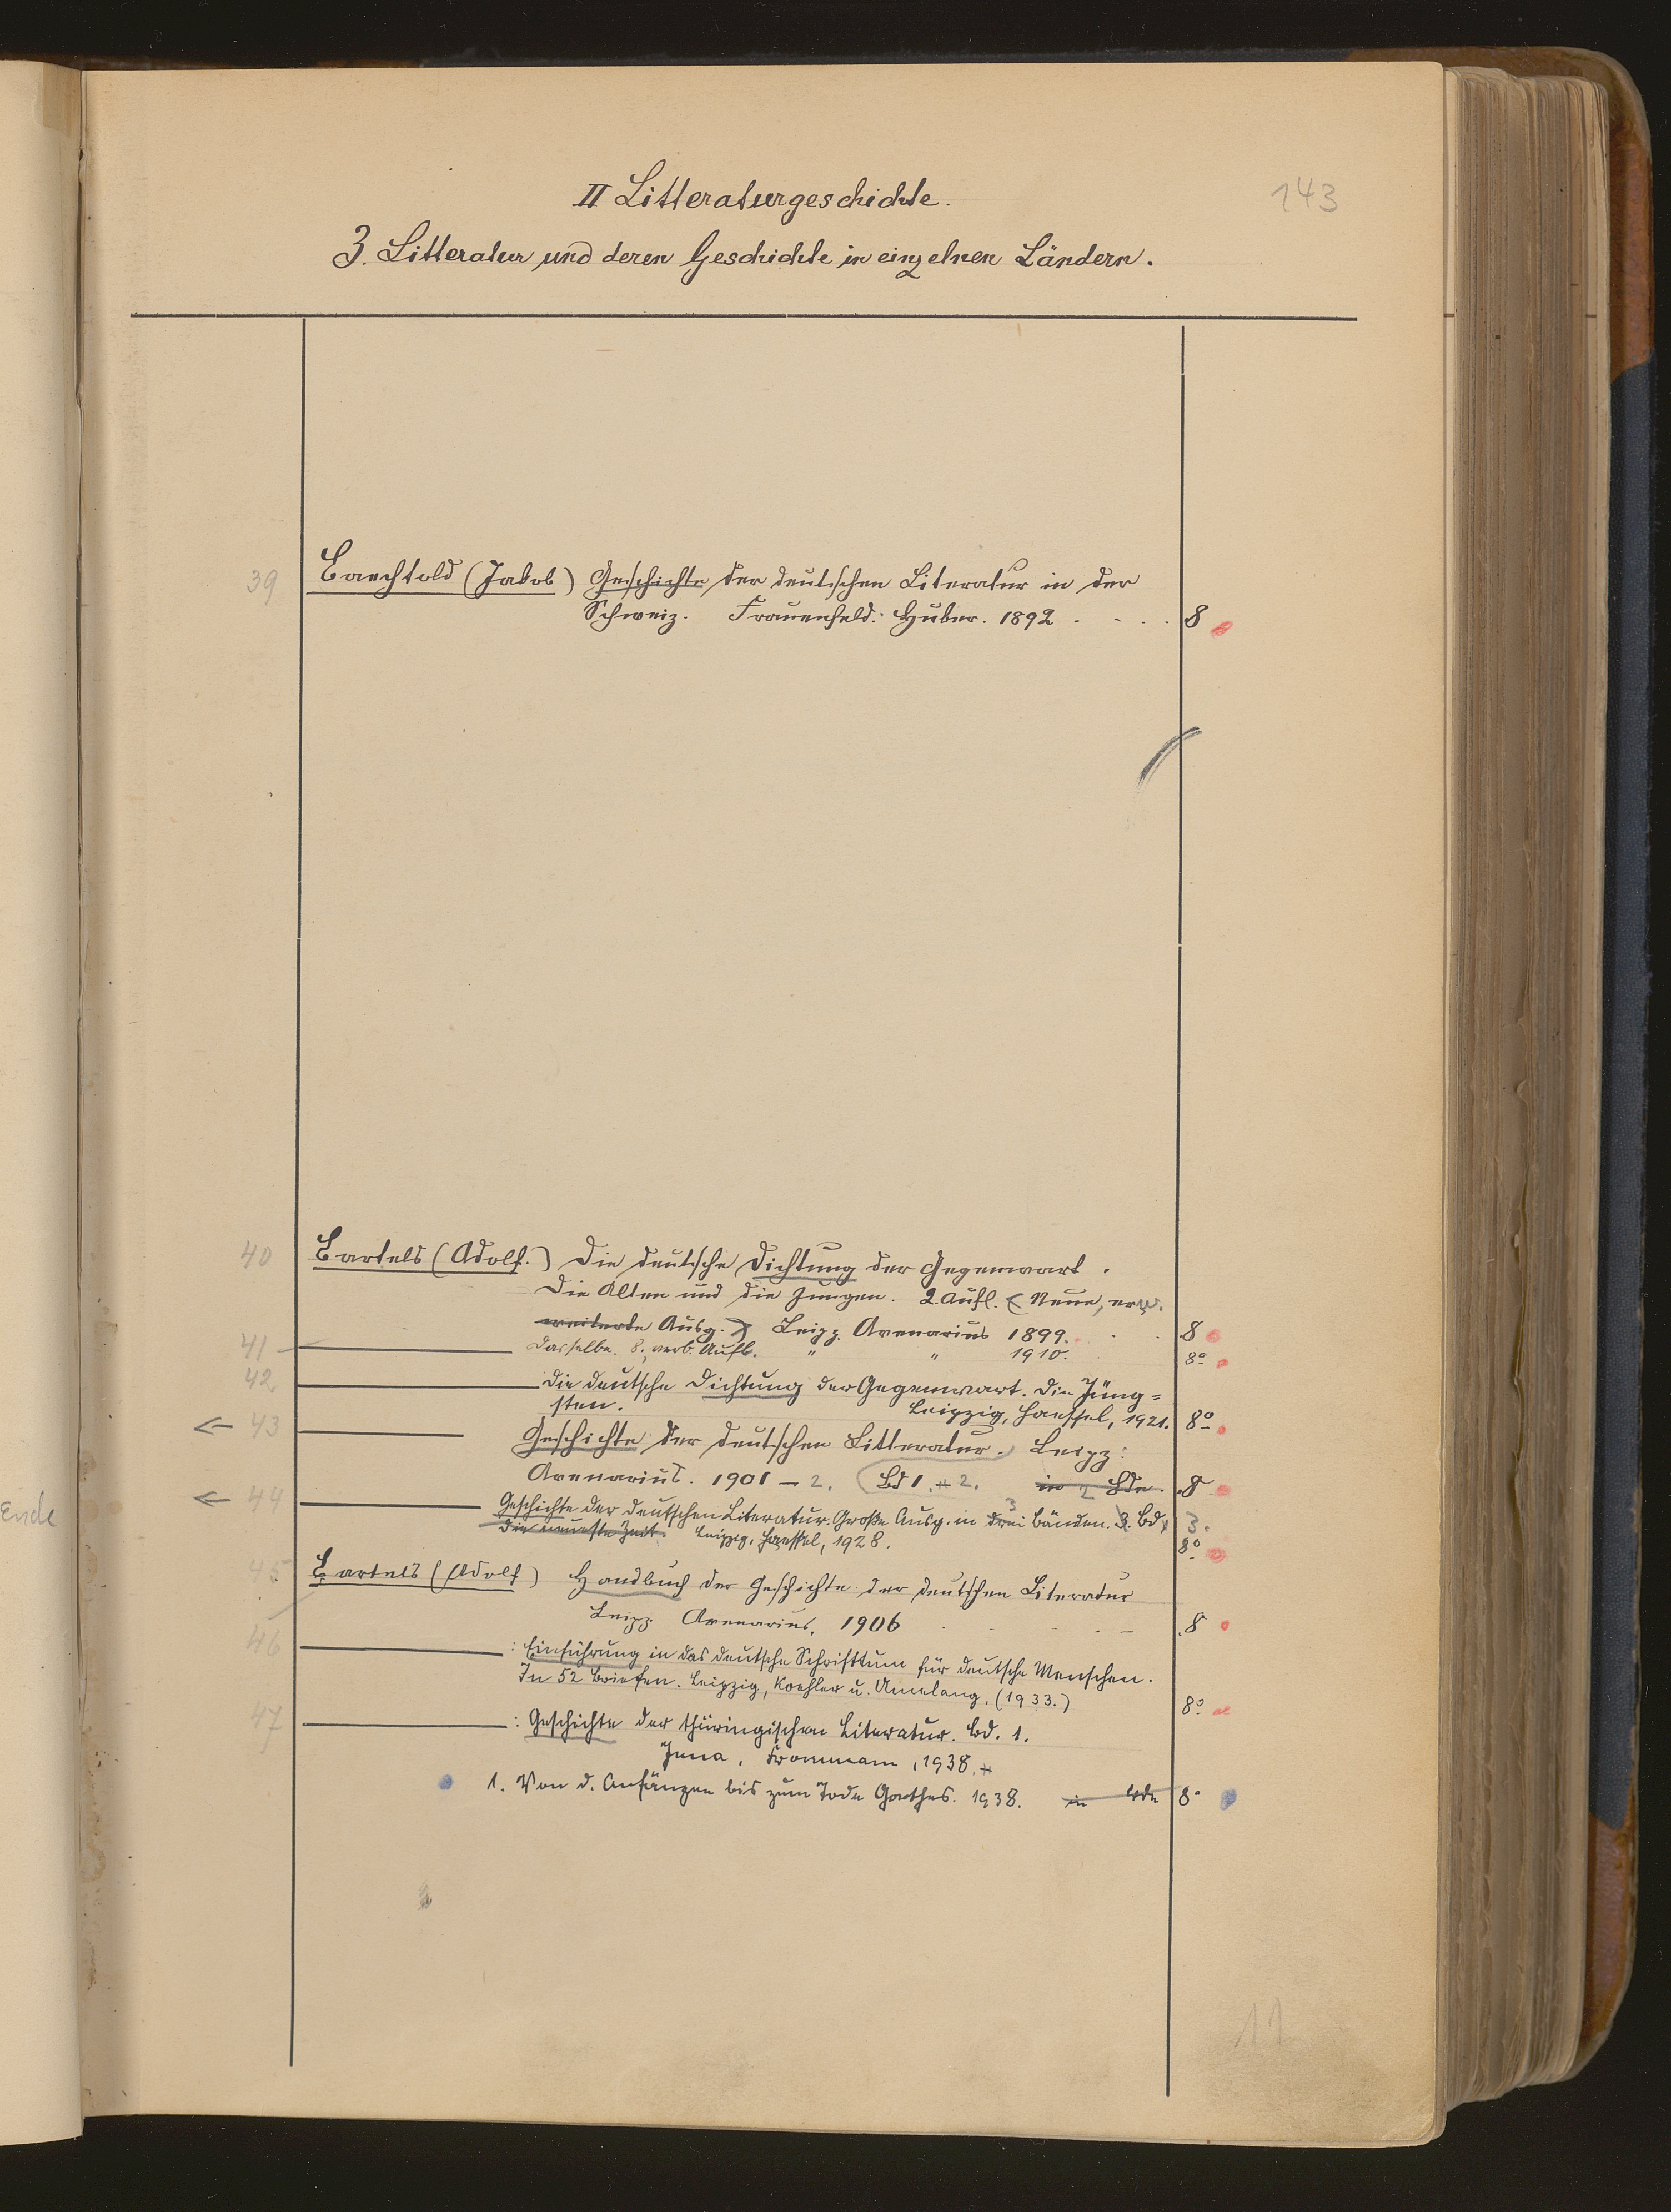 143
II Litteraturgeschichte.
3. Litteratur und deren Geschichte in einzelnen Ländern.
39 Baechtold (Jakob) Geschichte der deutschen Literatur in der
Schweiz. Frauenfeld: Huber. 1892 . . . . 8
40 Bartels (Adolf.) Die deutsche Dichtung der Gegenwart.
Die Alten und die Jungen. 2. Aufl. (Neue, erw.
weiterte Ausg.) Leipz. Avenarius 1899. . . 8
41 Dasselbe. 8., verb. Aufl. " " 1910. 8º
42 Die deutsche Dichtung der Gegenwart. Die Jüng=
sten. Leipzig, Haessel, 1921. 8º
← 43 Geschichte der deutschen Litteratur. Leipz:
Avenarius. 1901 – 2. (Bd 1. + 2. in 2 Bde. 8
← 44 Geschichte der deutschen Literatur. Große Ausg. in drei 3 Bänden. 3. Bd, 3.
Die neueste Zeit. Leipzig, Haessel, 1928. 8º
Ende
45 Bartels (Adolf) Handbuch der Geschichte der deutschen Literatur
Leipz. Avenarius. 1906 8
46 : Einführung in das deutsche Schrifttum für deutsche Menschen.
In 52 Briefen. Leipzig, Koehler u. Amelang, (1933.) 8º
47 : Geschichte der thüringischen Literatur. Bd. 1.
Jena, Frommann, 1938. +
1. Von d. Anfängen bis zum Tode Goethes. 1938. in Bde 8º
11